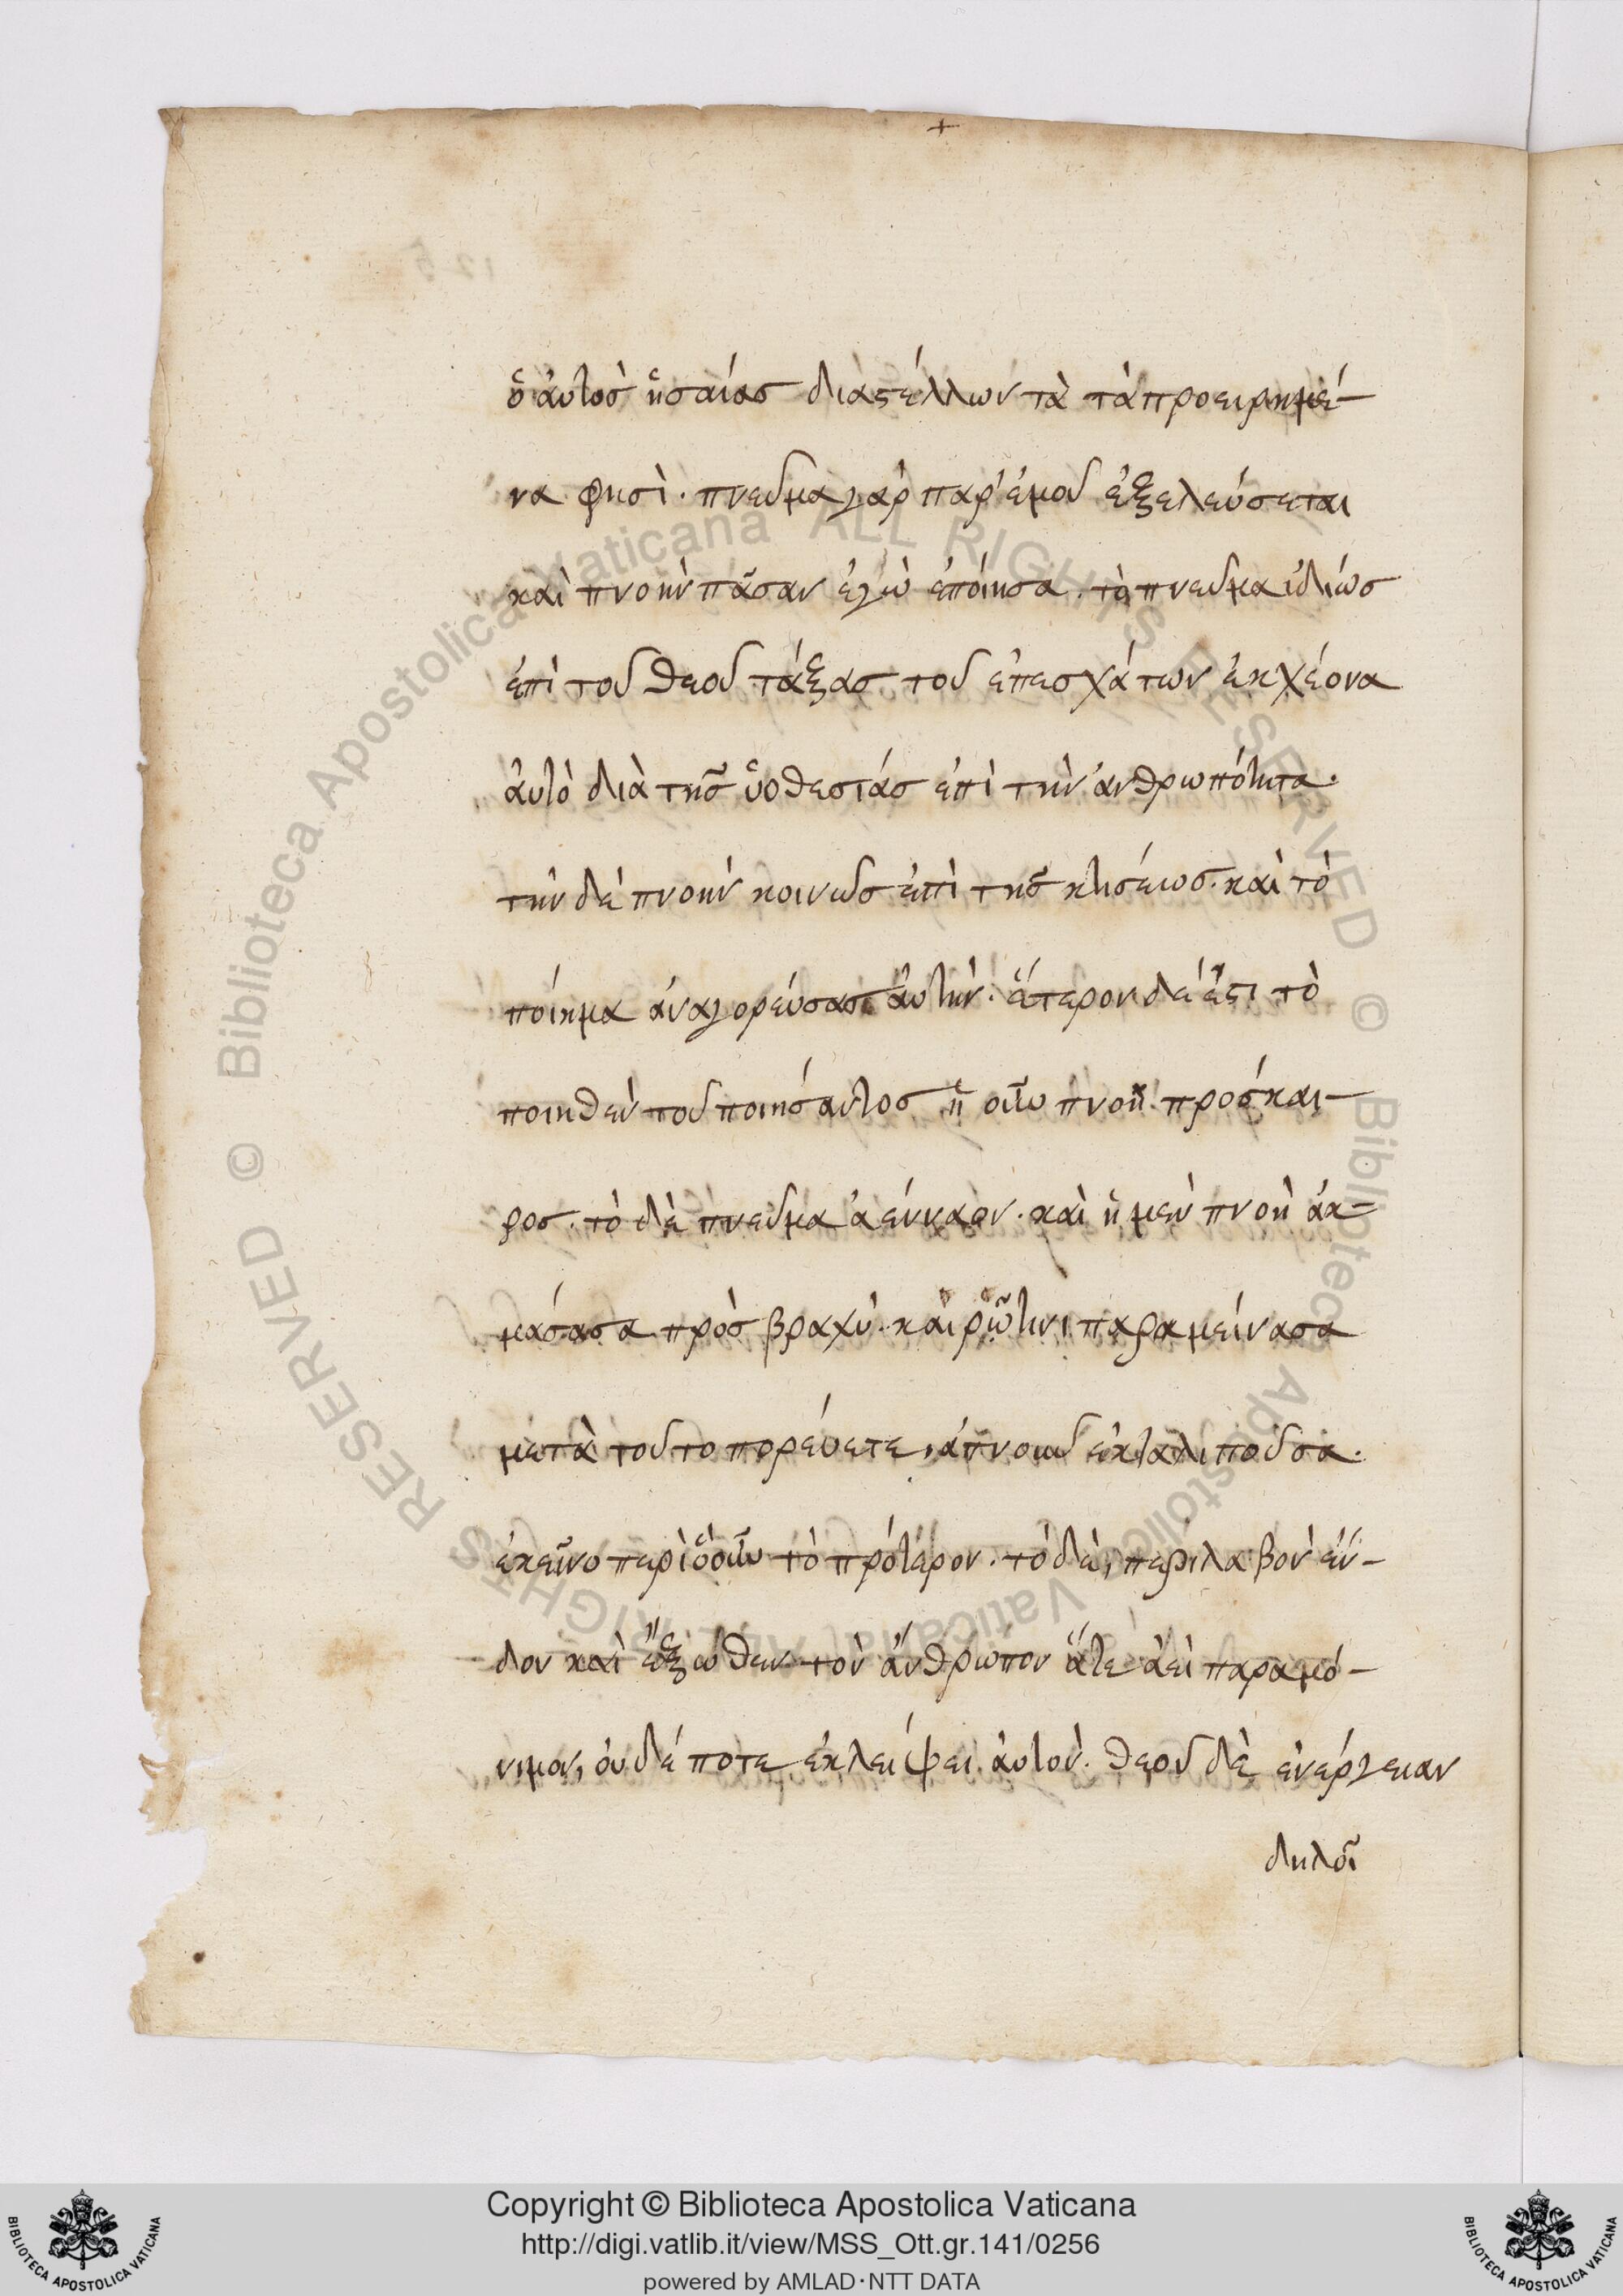 ὁ ἀυτὸς ἡσαίας διαστέλλων τὰ τὰ προειρημέ-
να φησὶ· πνεῦμα γὰρ παρ' ἐμοῦ ἐξελεύσεται
καὶ πνοὴν πᾶσαν ἐγὼ ἐπόιησα. τὸ πνεῦμα ἰδίως
ἐπὶ τοῦ θεοῦ τάξας τοῦ ἐπεσχάτων ἐκχέονα
ἀυτὸ διὰ τῆς ὑοθεσίας ἐπὶ τὴν ἀνθρωπότητα·
τὴν δὲ πνοὴν κοινῶς ἐπὶ τῆς κτισέως. καὶ τὸ
ποίημα ἀναγορέυσας ἀυτήν. ἕτερον δέ ἐστι τὸ
ποιηθὲν τοῦ ποιήσαντος ἡ οὖν πνοὴ πρόσκαι-
ρος. τὸ δὲ πνεῦμα ἀένναον. καὶ ἡ μὲν πνοὴ ἀκ-
μάσασα πρὸς βραχὺ. καὶ τινι παραμείνασα
μετὰ τοῦτο πορέυετε, ἄπνουν καταλιποῦσα.
ἐκεῖνο περὶ ὃ οὖν τὸ πρότερον. τὸ δὲ, περιλαβὸν ἔν-
δον καὶ ἔξωθεν τὸν ἄνθρωπον ἅτε ἀεὶ παραμό-
νιμον, ὀυδέποτε ἐκλείψει ἀυτὸν. θεοῦ δὲ ἐνέργειαν
δηλοῖ
Copyright © Biblioteca Apostolica Vaticana
http://digi.vatlib.it/view/MSS_Ott.gr.141/0256
powered by AMLAD·NTT DATA
© Biblioteca Apostolica Vaticana ALL RIGHTS RESERVED © Biblioteca Apostolica Vaticana ALL RIGHTS RESERVED
BIBLIOTECA APOSTOLICA VATICANA
BIBLIOTECA APOSTOLICA VATICANA